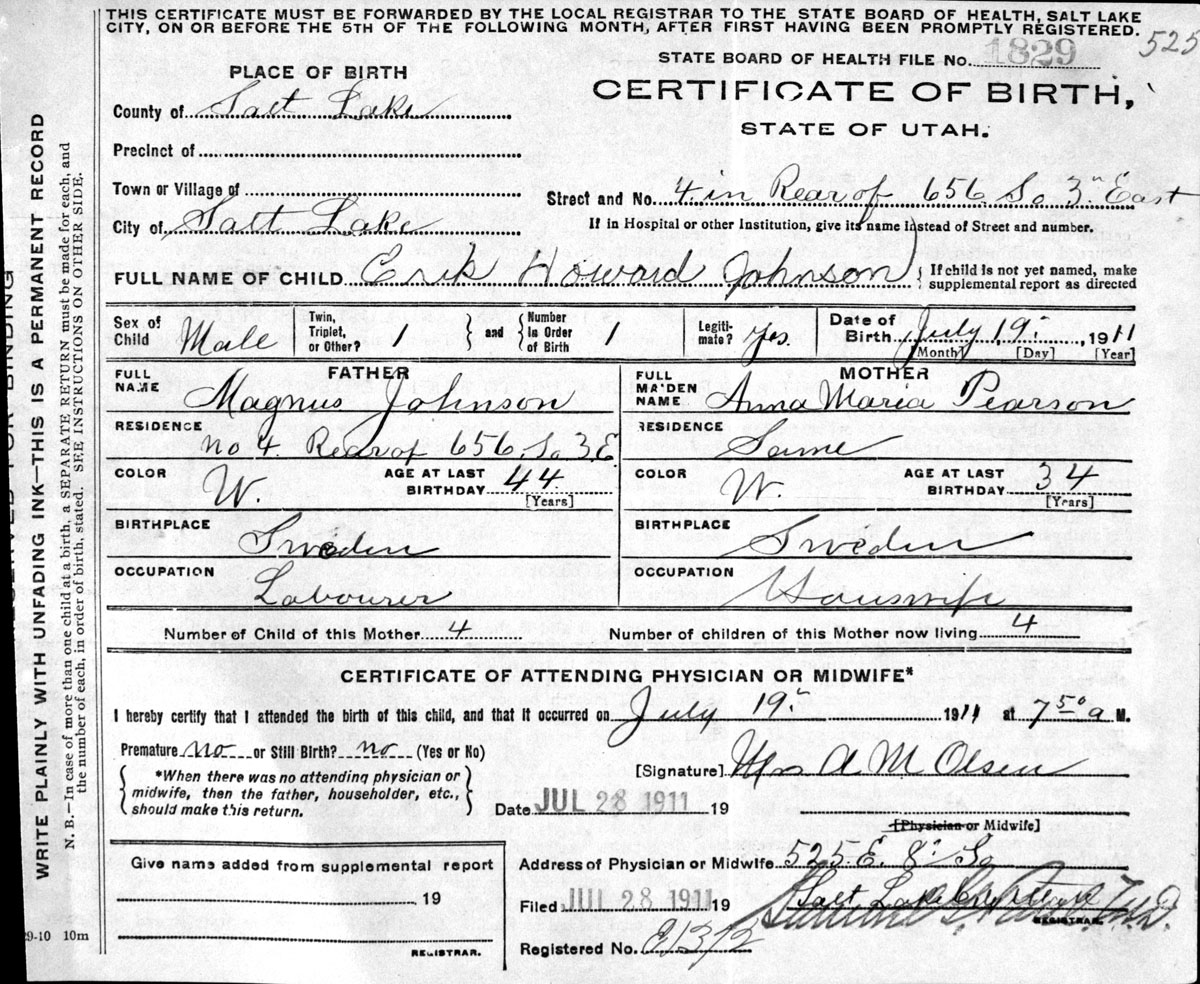 THIS CERTIFICATE MUST BE FORWARDED BY THE LOCAL REGISTRAR TO THE STATE BOARD OF HEALTH, SALT LAKE
CITY, ON OR BEFORE THE 5TH OF THE FOLLOWING MONTH, AFTER FIRST HAVING BEEN PROMPTLY REGISTERED.
525
STATE BOARD OF HEALTH FILE No. 1829
PLACE OF BIRTH
CERTIFICATE OF BIRTH,
STATE OF UTAH.
County of Salt Lake
Precinct of
Town or Village of
Street and No. 4 in Rear of 656 So 3rd East
City of Salt Lake
If in Hospital or other Institution, give its name instead of Street and number.
FULL NAME OF CHILD Erik Howard Johnson
If child is not yet named, make
supplemental report as directed
Sex of Child Male
Twin, Triplet, or Other? 1 and Number in Order of Birth 1
Legiti-mate? Yes.
Date of Birth July 19 1911
[Month] [Day] [Year]
FATHER
FULL NAME Magnus Johnson
RESIDENCE No 4. Rear of 656 So 3 E.
COLOR W. AGE AT LAST BIRTHDAY 44
[Years]
BIRTHPLACE Sweden
OCCUPATION Labourer
MOTHER
FULL MAIDEN NAME Anna Maria Pearson
RESIDENCE Same
COLOR W. AGE AT LAST BIRTHDAY 34
[Years]
BIRTHPLACE Sweden
OCCUPATION Houswife
Number of Child of this Mother 4 Number of children of this Mother now living 4
CERTIFICATE OF ATTENDING PHYSICIAN OR MIDWIFE*
I hereby certify that I attended the birth of this child, and that it occurred on July 19 1911 at 7 50 a M.
Premature no or Still Birth? no (Yes or No)
*When there was no attending physician or
midwife, then the father, householder, etc.,
should make this return.
[Signature] Mrs A M Olsen
Date JUL 28 1911 19
[Physician or Midwife]
Give name added from supplemental report
19
REGISTRAR.
Address of Physician or Midwife 525 E. 8 So
Salt Lake
Filed JUL 28 1911 19
M.D.
REGISTRAR.
Registered No. E1372
WRITE PLAINLY WITH UNFADING INK—THIS IS A PERMANENT RECORD
N. B.—In case of more than one child at a birth, a SEPARATE RETURN must be made for each, and
the number of each, in order of birth, stated. SEE INSTRUCTIONS ON OTHER SIDE.
29-10 10m